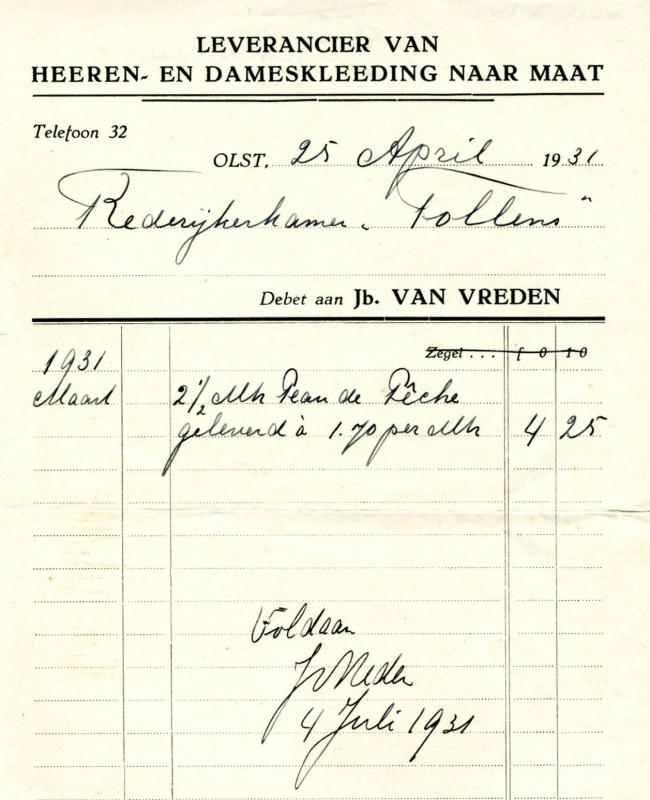 LEVERANCIER VAN
HEEREN- EN DAMESKLEEDING NAAR MAAT
Telefoon 32
OLST, 25 April 1931
Rederijkerkamer „ Tollens "
Debet aan Jb. VAN VREDEN
Zegel . . . f 0 10
1931
Maart 2 1/2 Mtr Peau de Pêche
geleverd à 1.70 per Mtr 4 25
Voldaan
JvVreden
4 Juli 1931